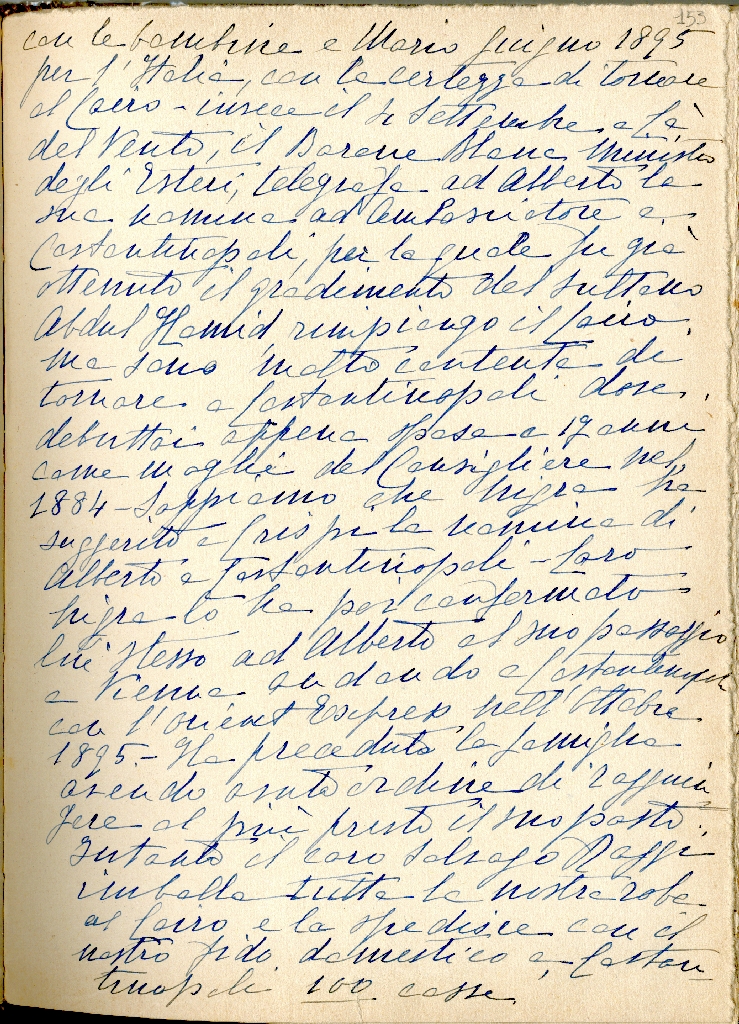 153
con le bambine e Mario giugno 1895
per l'Italia, con la certezza di tornare
al Cairo - invece il 2 Settembre a Cà
del Vento, il Barone Blanc Ministro
degli Esteri, telegrafa ad Alberto la
sua nomina ad Ambasciatore a
Costantinopoli, per la quale fu già
ottenuto il gradimento del Sultano
Abdul Hamid, rimpiango il Cairo,
ma sono molto contenta di
tornare a Costantinopoli dove
debuttai appena sposa a 19 anni
come moglie del Consigliere nel
1884 - Sappiamo che Nigra ha
suggerito a Crispi la nomina di
Alberto a Costantinopoli - Caro
Nigra lo ha poi confermato
lui stesso ad Alberto al suo passaggio
a Vienna andando a Costantinopoli
con l'Orient Express nell'Ottobre
1895. - Ha preceduto la famiglia
avendo avuto ordine di raggiun
gere al più presto il suo posto.
Intanto il caro Salvago Raggi
imballa tutta la nostra roba
al Cairo e la spedisce con il
nostro fido domestico a Costan
tinopoli 100 casse.